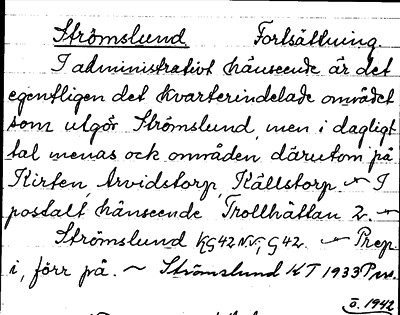 Strömslund. Fortsättning.
I administrativt hänseende är det
egentligen det kvarterindelade området
som utgör Strömslund, men i dagligt
tal menas ock områden därutom på
Kirten, Arvidstorp, Källstorp. ~ I
postalt hänseende Trollhättan 2. ~
Strömslund KG42NV; G42. ~ Prep.
i, förr på. ~ Strömslund KT 1933
ö. 1942